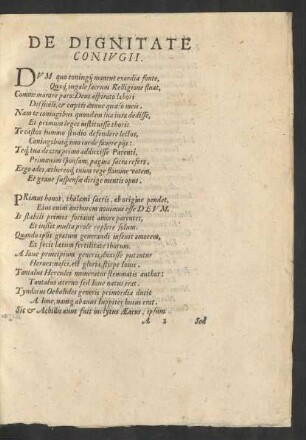 DE DIGNITATE
CONIVGII.
DVM quo coniugij manent exordia fonte,
Quoq́; iugale sacrum Relligione fluat,
Commemorare paro: Deus aspirato labori
Difficili, & cæptis annue quæso meis.
Nam te coniugibus quondam iura dedisse,
Et primum leges instituisse thori:
Te castos summo studio defendere lectos,
Coniugibusq́; uno corde fauere pijs:
Teq́; tua dextra primo adduxisse Parenti,
Primæuam sponsam, pagina sacra refert.
Ergo ades, æthereoq́; tuum rege flamine vatem,
Et graue suspensæ dirige mentis opus.
PRimus honos, thalami sacri, ab origine pendet,
Eius enim authorem nouimus esse DEVM.
Is stabili primos sociauit amore parentes,
Et iussit multa prole replere solum.
Quando ipsis gratum generandi inseuit amorem,
Et fecit lætum fertilitate thorum.
A Ioue principium generis duxisse putantur
Heroes magni, est gloria stirpe Iouis.
Tantalus Herculei numeratur stemmatis author:
Tantalus æterno sed Ioue natus erat.
Tyndarus Oebalidis generis primordia ducit
A Ioue, namq́; abauus Iuppiter huius erat.
Sic & Achillis auus fuit inclytus Æacus, ipsum
A 2 Sed